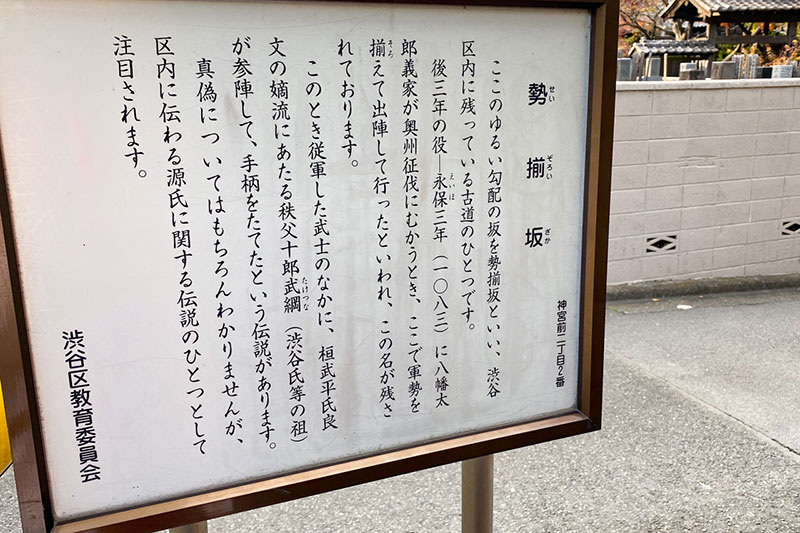 勢揃坂
せいぞろいざか
神宮前二丁目2番
ここのゆるい勾配の坂を勢揃坂といい、渋谷
区内に残っている古道のひとつです。
後三年の役―永保三年(一〇八三)に八幡太
えいほ
郎義家が奥州征伐にむかうとき、ここで軍勢を
揃えて出陣して行ったといわれ、この名が残さ
そろ
れております。
このとき従軍した武士のなかに、桓武平氏良
文の嫡流にあたる秩父十郎武綱(渋谷氏等の祖)
たけつな
が参陣して、手柄をたてたという伝説があります。
真偽についてはもちろんわかりませんが、
区内に伝わる源氏に関する伝説のひとつとして
注目されます。
渋谷区教育委員会